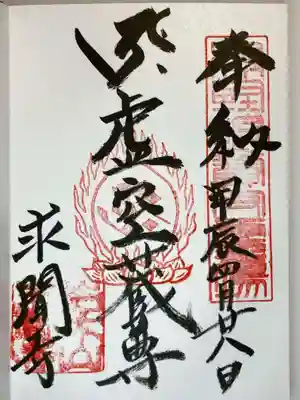 奉納甲辰四月廿八日
虚空蔵尊
求聞寺